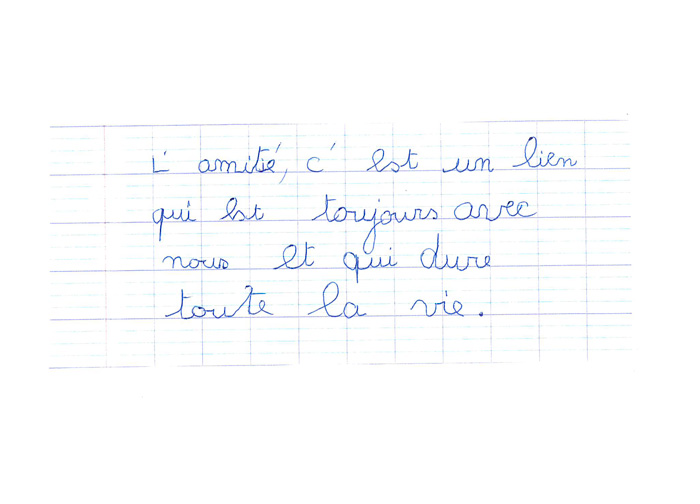 L'amitié, c'est un lien
qui est toujours avec
nous et qui dure
toute la vie.